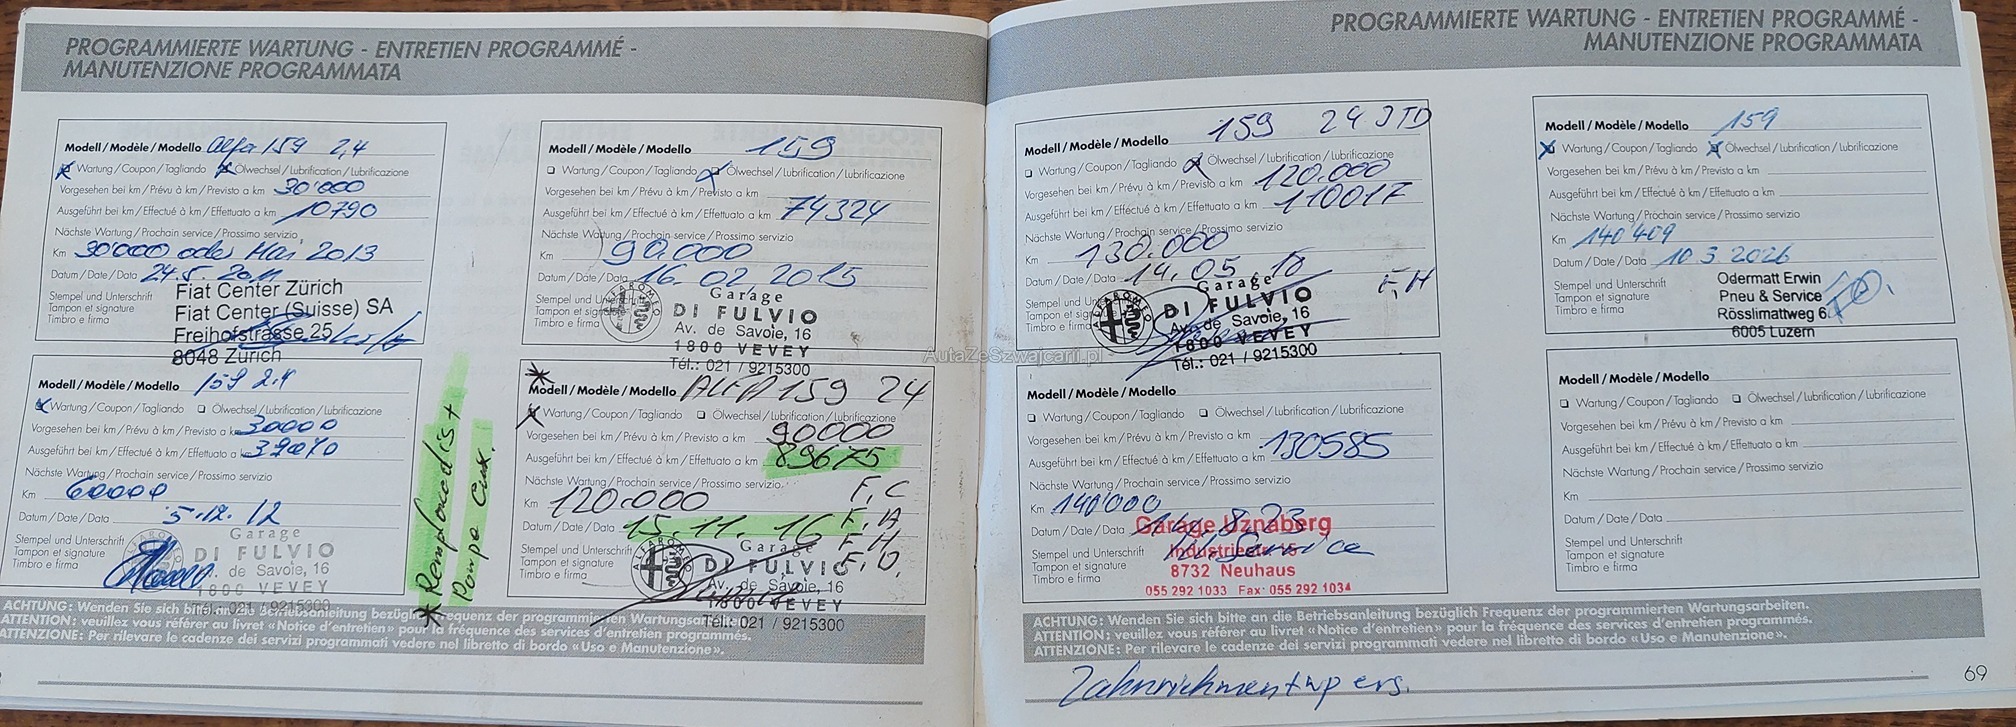 PROGRAMMIERTE WARTUNG - ENTRETIEN PROGRAMMÉ -
MANUTENZIONE PROGRAMMATA
Modell / Modèle / Modello Alfa 159 2,4
Wartung / Coupon / Tagliando Ölwechsel / Lubrification / Lubrificazione
Vorgesehen bei km / Prévu à km / Previsto a km 30'000
Ausgeführt bei km / Effectué à km / Effettuato a km 10790
Nächste Wartung / Prochain service / Prossimo servizio
Km 30000 oder Mai 2013
Datum / Date / Data 24.5.2011
Stempel und Unterschrift
Tampon et signature
Timbro e firma
Fiat Center Zürich
Fiat Center (Suisse) SA
Freihofstrasse 25
8048 Zürich
Modell / Modèle / Modello 159 2.4
Wartung / Coupon / Tagliando Ölwechsel / Lubrification / Lubrificazione
Vorgesehen bei km / Prévu à km / Previsto a km 30000
Ausgeführt bei km / Effectué à km / Effettuato a km
Nächste Wartung / Prochain service / Prossimo servizio
Km 60000
Datum / Date / Data 5.12.12
Stempel und Unterschrift
Tampon et signature
Timbro e firma
Garage
DI FULVIO
Av. de Savoie, 16
1800 VEVEY
Tél.: 021 / 9215300
Pompe
Modell / Modèle / Modello 159
Wartung / Coupon / Tagliando Ölwechsel / Lubrification / Lubrificazione
Vorgesehen bei km / Prévu à km / Previsto a km
Ausgeführt bei km / Effectué à km / Effettuato a km 74324
Nächste Wartung / Prochain service / Prossimo servizio
Km 90.000
Datum / Date / Data 16.02.2015
Stempel und Unterschrift
Tampon et signature
Timbro e firma
ALFA ROMEO
Garage
DI FULVIO
Av. de Savoie, 16
1800 VEVEY
Tél.: 021 / 9215300
Modell / Modèle / Modello ALFA 159 24
Wartung / Coupon / Tagliando Ölwechsel / Lubrification / Lubrificazione
Vorgesehen bei km / Prévu à km / Previsto a km 90000
Ausgeführt bei km / Effectué à km / Effettuato a km 89675
Nächste Wartung / Prochain service / Prossimo servizio
Km 120.000 F,C
Datum / Date / Data 15.11.16 F,A
F,H
F,O.
Stempel und Unterschrift
Tampon et signature
Timbro e firma
ALFA ROMEO
Garage
DI FULVIO
Av. de Savoie, 16
1800 VEVEY
Tél.: 021 / 9215300
ACHTUNG: Wenden Sie sich bitte an die Betriebsanleitung bezüglich Frequenz der programmierten Wartungsarbeiten.
ATTENTION: veuillez vous référer au livret «Notice d'entretien» pour la fréquence des services d'entretien programmés.
ATTENZIONE: Per rilevare le cadenze dei servizi programmati vedere nel libretto di bordo «Uso e Manutenzione».
PROGRAMMIERTE WARTUNG - ENTRETIEN PROGRAMMÉ -
MANUTENZIONE PROGRAMMATA
Modell / Modèle / Modello 159 24 JTD
Wartung / Coupon / Tagliando Ölwechsel / Lubrification / Lubrificazione
Vorgesehen bei km / Prévu à km / Previsto a km 120.000
Ausgeführt bei km / Effectué à km / Effettuato a km
Nächste Wartung / Prochain service / Prossimo servizio
Km 130.000
Datum / Date / Data 14.05 18
F,H
Stempel und Unterschrift
Tampon et signature
Timbro e firma
ALFA ROMEO
Garage
DI FULVIO
Av. de Savoie, 16
1800 VEVEY
Tél.: 021 / 9215300
Modell / Modèle / Modello
Wartung / Coupon / Tagliando Ölwechsel / Lubrification / Lubrificazione
Vorgesehen bei km / Prévu à km / Previsto a km
Ausgeführt bei km / Effectué à km / Effettuato a km 130585
Nächste Wartung / Prochain service / Prossimo servizio
Km 140'000
Datum / Date / Data 8.23
Stempel und Unterschrift
Tampon et signature
Timbro e firma
Garage Uznaberg
8732 Neuhaus
055 292 1033 Fax 055 292 1034
Modell / Modèle / Modello 159
Wartung / Coupon / Tagliando Ölwechsel / Lubrification / Lubrificazione
Vorgesehen bei km / Prévu à km / Previsto a km
Ausgeführt bei km / Effectué à km / Effettuato a km
Nächste Wartung / Prochain service / Prossimo servizio
Km 140'409
Datum / Date / Data 10 3.2026
Stempel und Unterschrift
Tampon et signature
Timbro e firma
Odermatt Erwin
Pneu & Service
Rösslimattweg 6
6005 Luzern
Modell / Modèle / Modello
Wartung / Coupon / Tagliando Ölwechsel / Lubrification / Lubrificazione
Vorgesehen bei km / Prévu à km / Previsto a km
Ausgeführt bei km / Effectué à km / Effettuato a km
Nächste Wartung / Prochain service / Prossimo servizio
Km
Datum / Date / Data
Stempel und Unterschrift
Tampon et signature
Timbro e firma
ACHTUNG: Wenden Sie sich bitte an die Betriebsanleitung bezüglich Frequenz der programmierten Wartungsarbeiten.
ATTENTION: veuillez vous référer au livret «Notice d'entretien» pour la fréquence des services d'entretien programmés.
ATTENZIONE: Per rilevare le cadenze dei servizi programmati vedere nel libretto di bordo «Uso e Manutenzione».
ers.
69
AutaZeSzwajcarii.pl